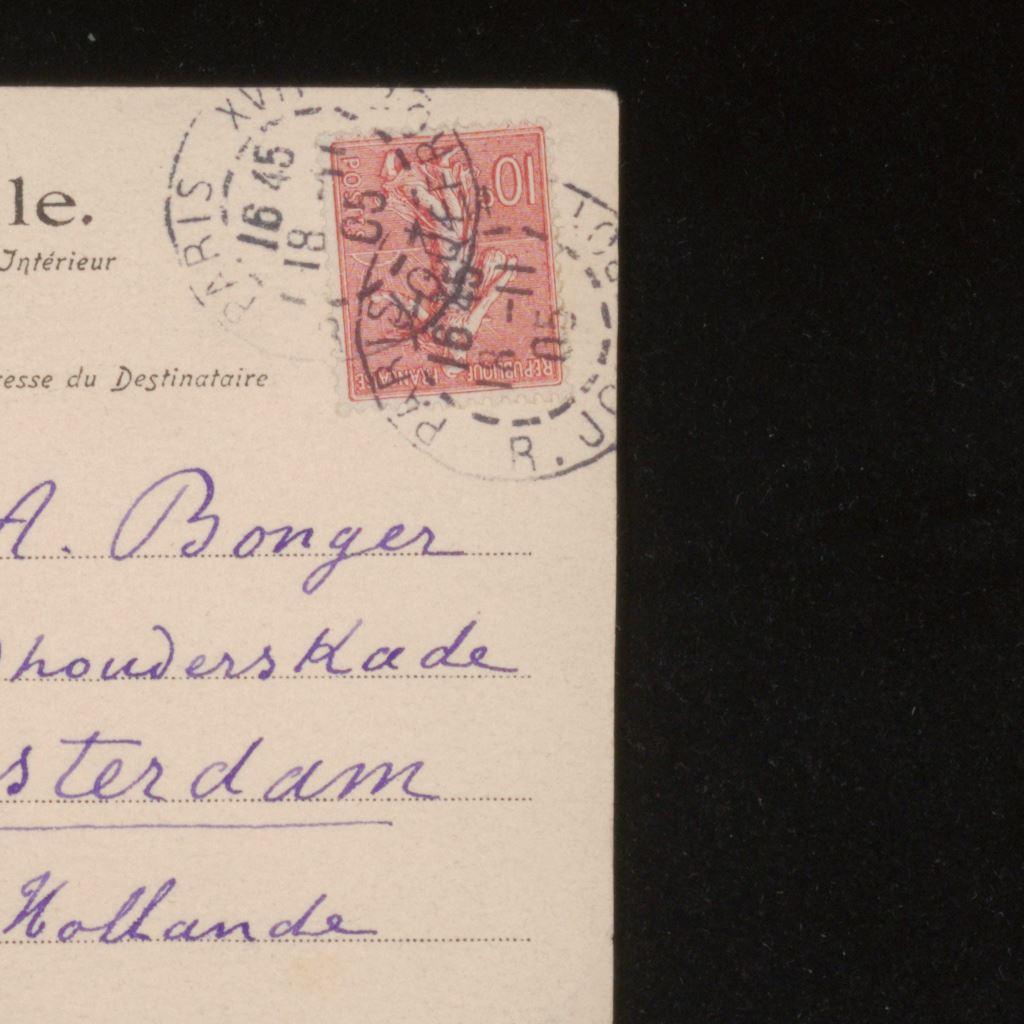 le.
Intérieur
resse du Destinataire
PARIS XVII
16 45
18 -11
05
10c
POSTES
REPUBLIQUE FRANÇAISE
PARIS
16 45
18 -11
05
R. JO
A. Bonger
houderskade
sterdam
Hollande